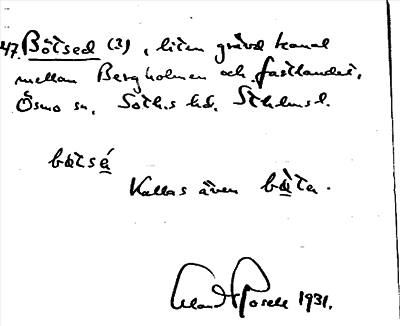 47. Båtsed (?), liten grävd kanal
mellan Bergholmen och fastlandet,
Ösmo sn, Soth.s hd. Sthlms l.
båtsé
Kallas även båta.
1931.